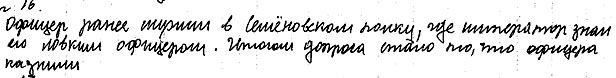 г. 16.
Офицер ранее служил в Семёновском полку, где император знал
его ловким офицером. Итогом допроса стало то, что офицера
казнили